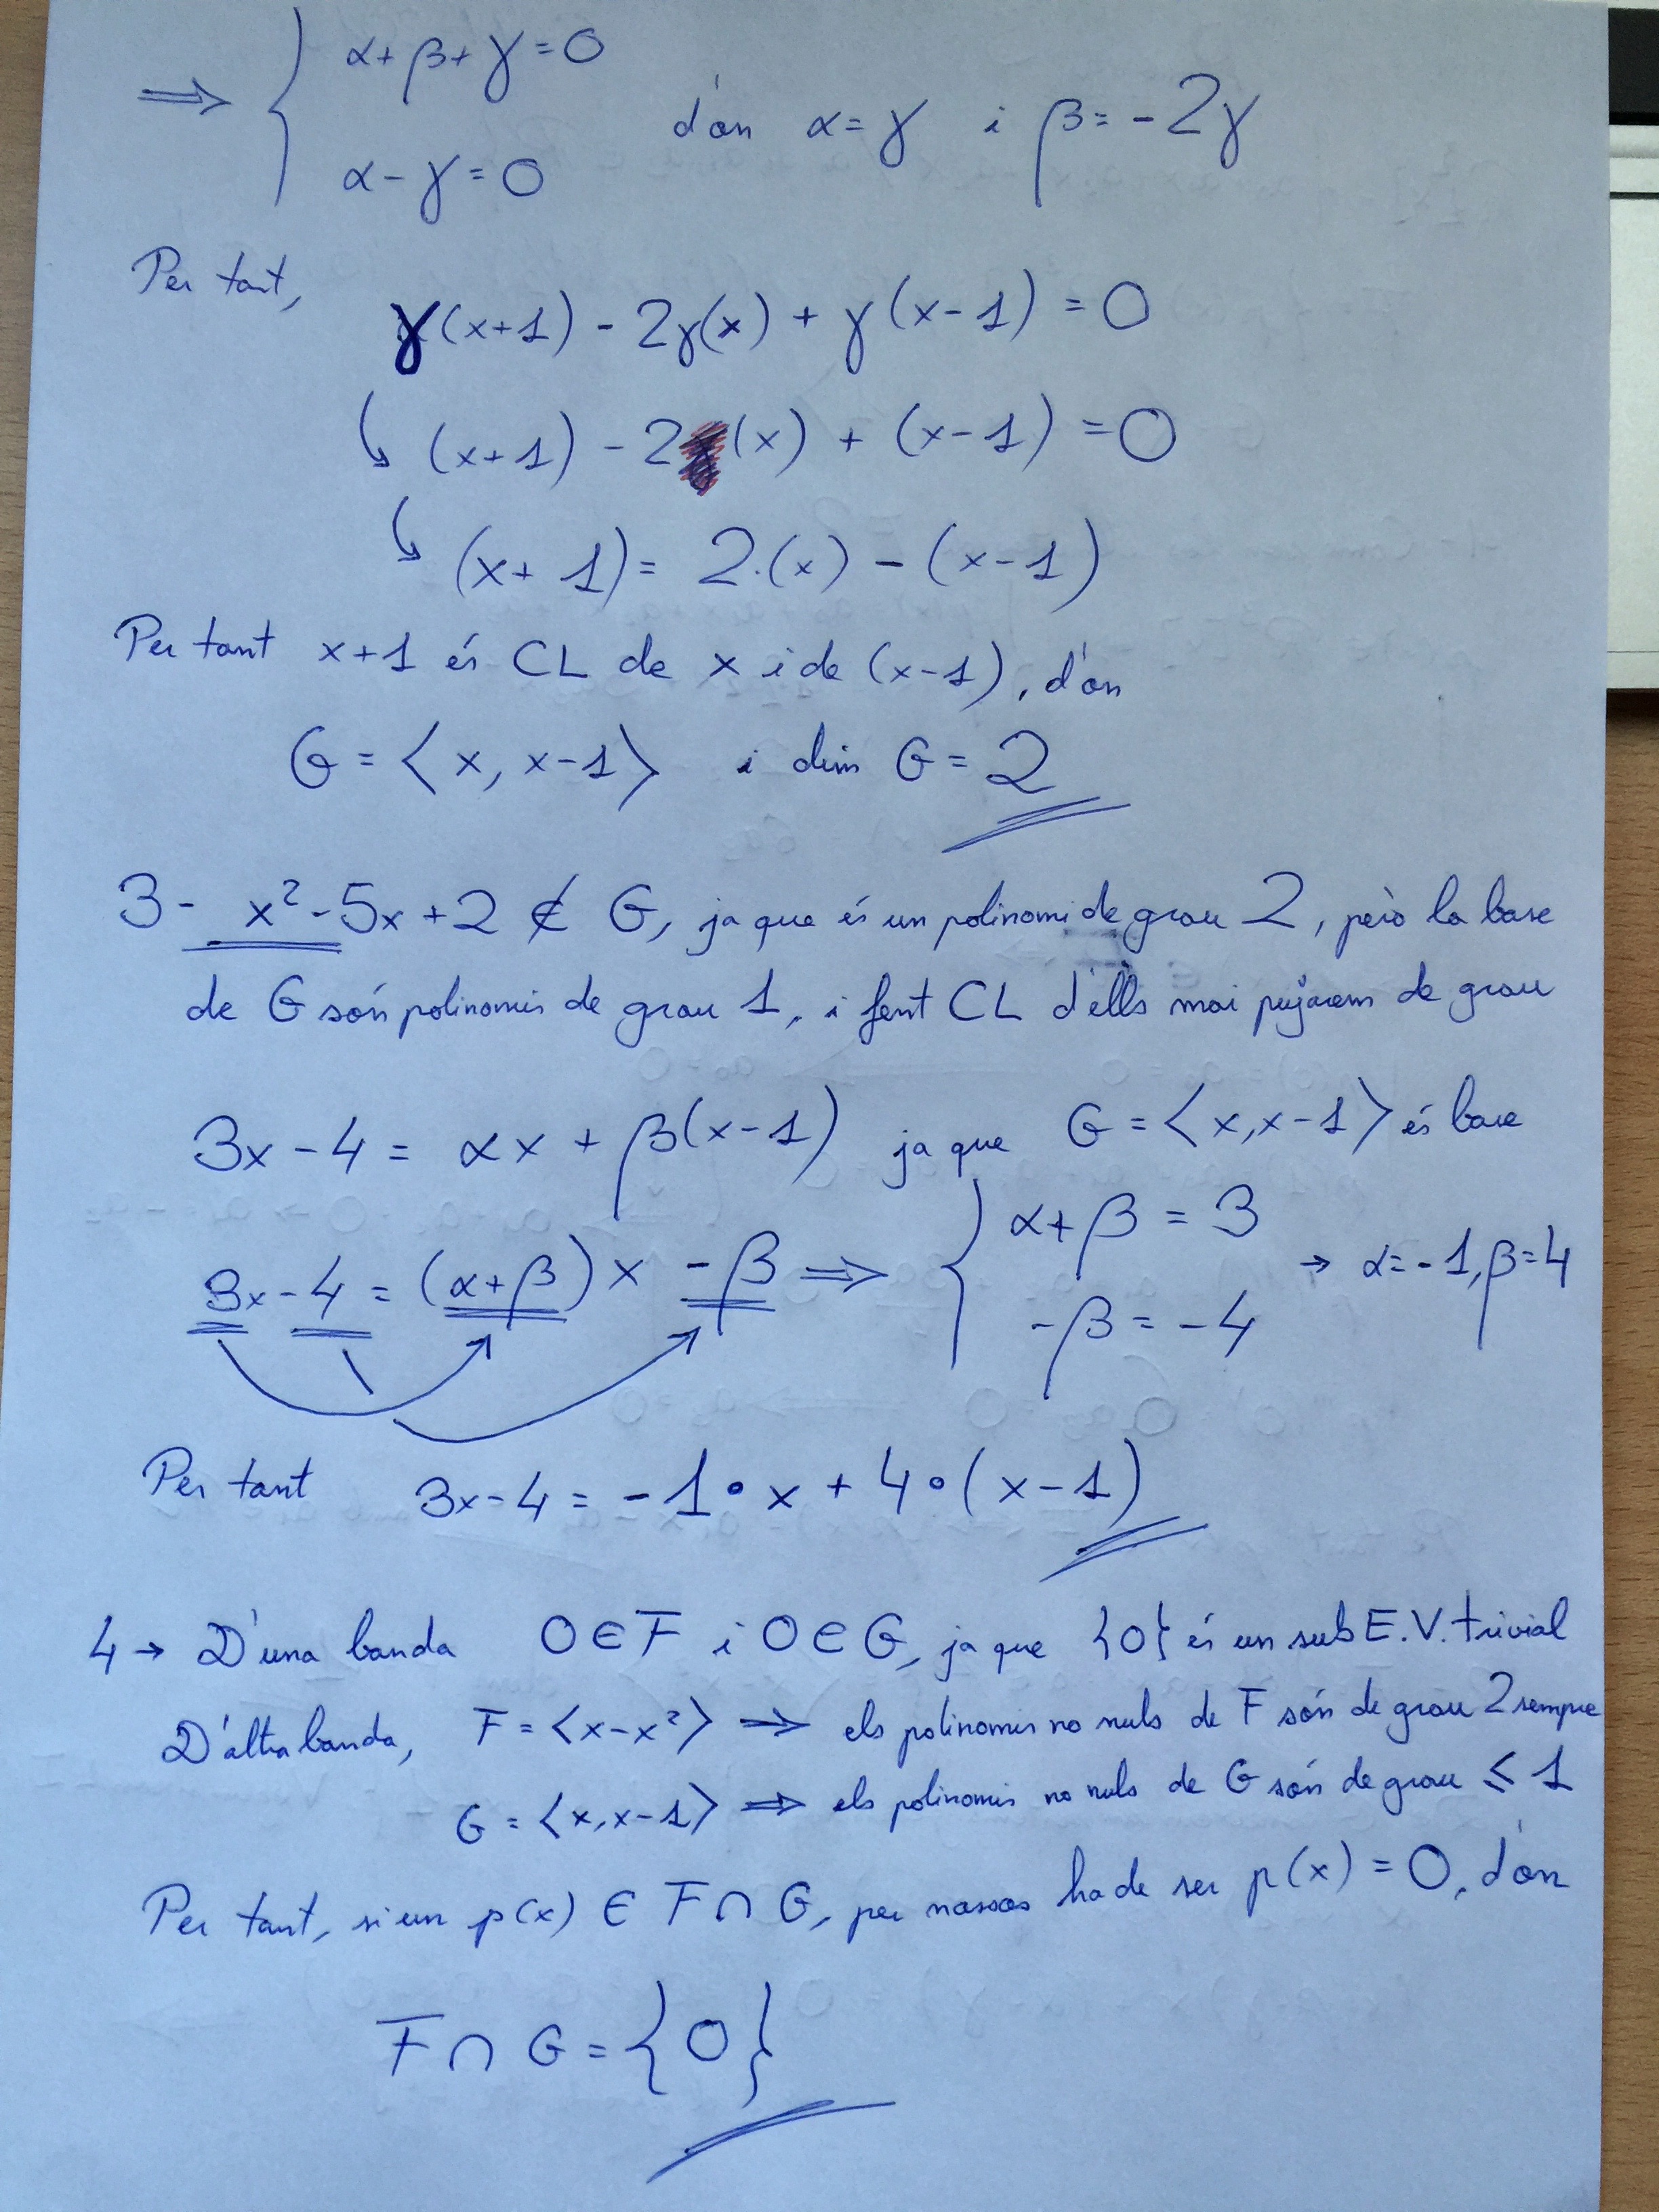 ⇒ { α+β+γ=0
α-γ=0 d'on α=γ i β=-2γ
Per tant,
γ(x+1) - 2γ(x) + γ(x-1) = 0
↳ (x+1) - 2(x) + (x-1) = 0
↳ (x+1) = 2·(x) - (x-1)
Per tant x+1 és CL de x i de (x-1), d'on
G = ⟨x, x-1⟩ i dim G = 2
3- x²-5x+2 ∉ G, ja que és un polinomi de grau 2, però la base
de G són polinomis de grau 1, i fent CL d'ells mai pujarem de grau
3x-4 = αx + β(x-1) ja que G = ⟨x,x-1⟩ és base
3x-4 = (α+β)x -β ⇒ { α+β = 3
-β = -4 → α=-1, β=4
Per tant 3x-4 = -1·x + 4·(x-1)
4→ D'una banda 0∈F i 0∈G, ja que {0} és un sub E.V. trivial
D'altra banda, F = ⟨x-x²⟩ ⇒ els polinomis no nuls de F són de grau 2 sempre
G = ⟨x,x-1⟩ ⇒ els polinomis no nuls de G són de grau ≤ 1
Per tant, si un p(x) ∈ F∩G, per nassos ha de ser p(x) = 0, d'on
F∩G = {0}